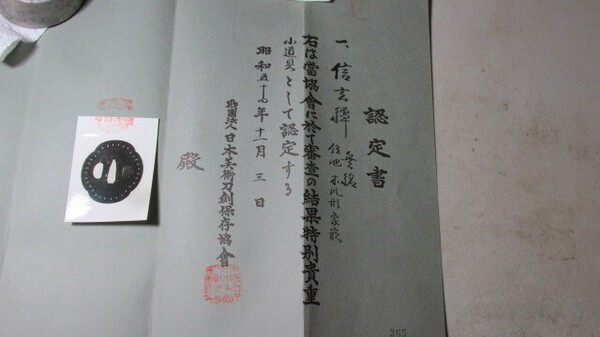 認定書
一、信玄鐔 無銘
地 木瓜形 象嵌
右は當協會に於て審査の結果特別貴重
小道具として認定する
昭和五十年十一月三日
財團法人日本美術刀剣保存協會
殿
355